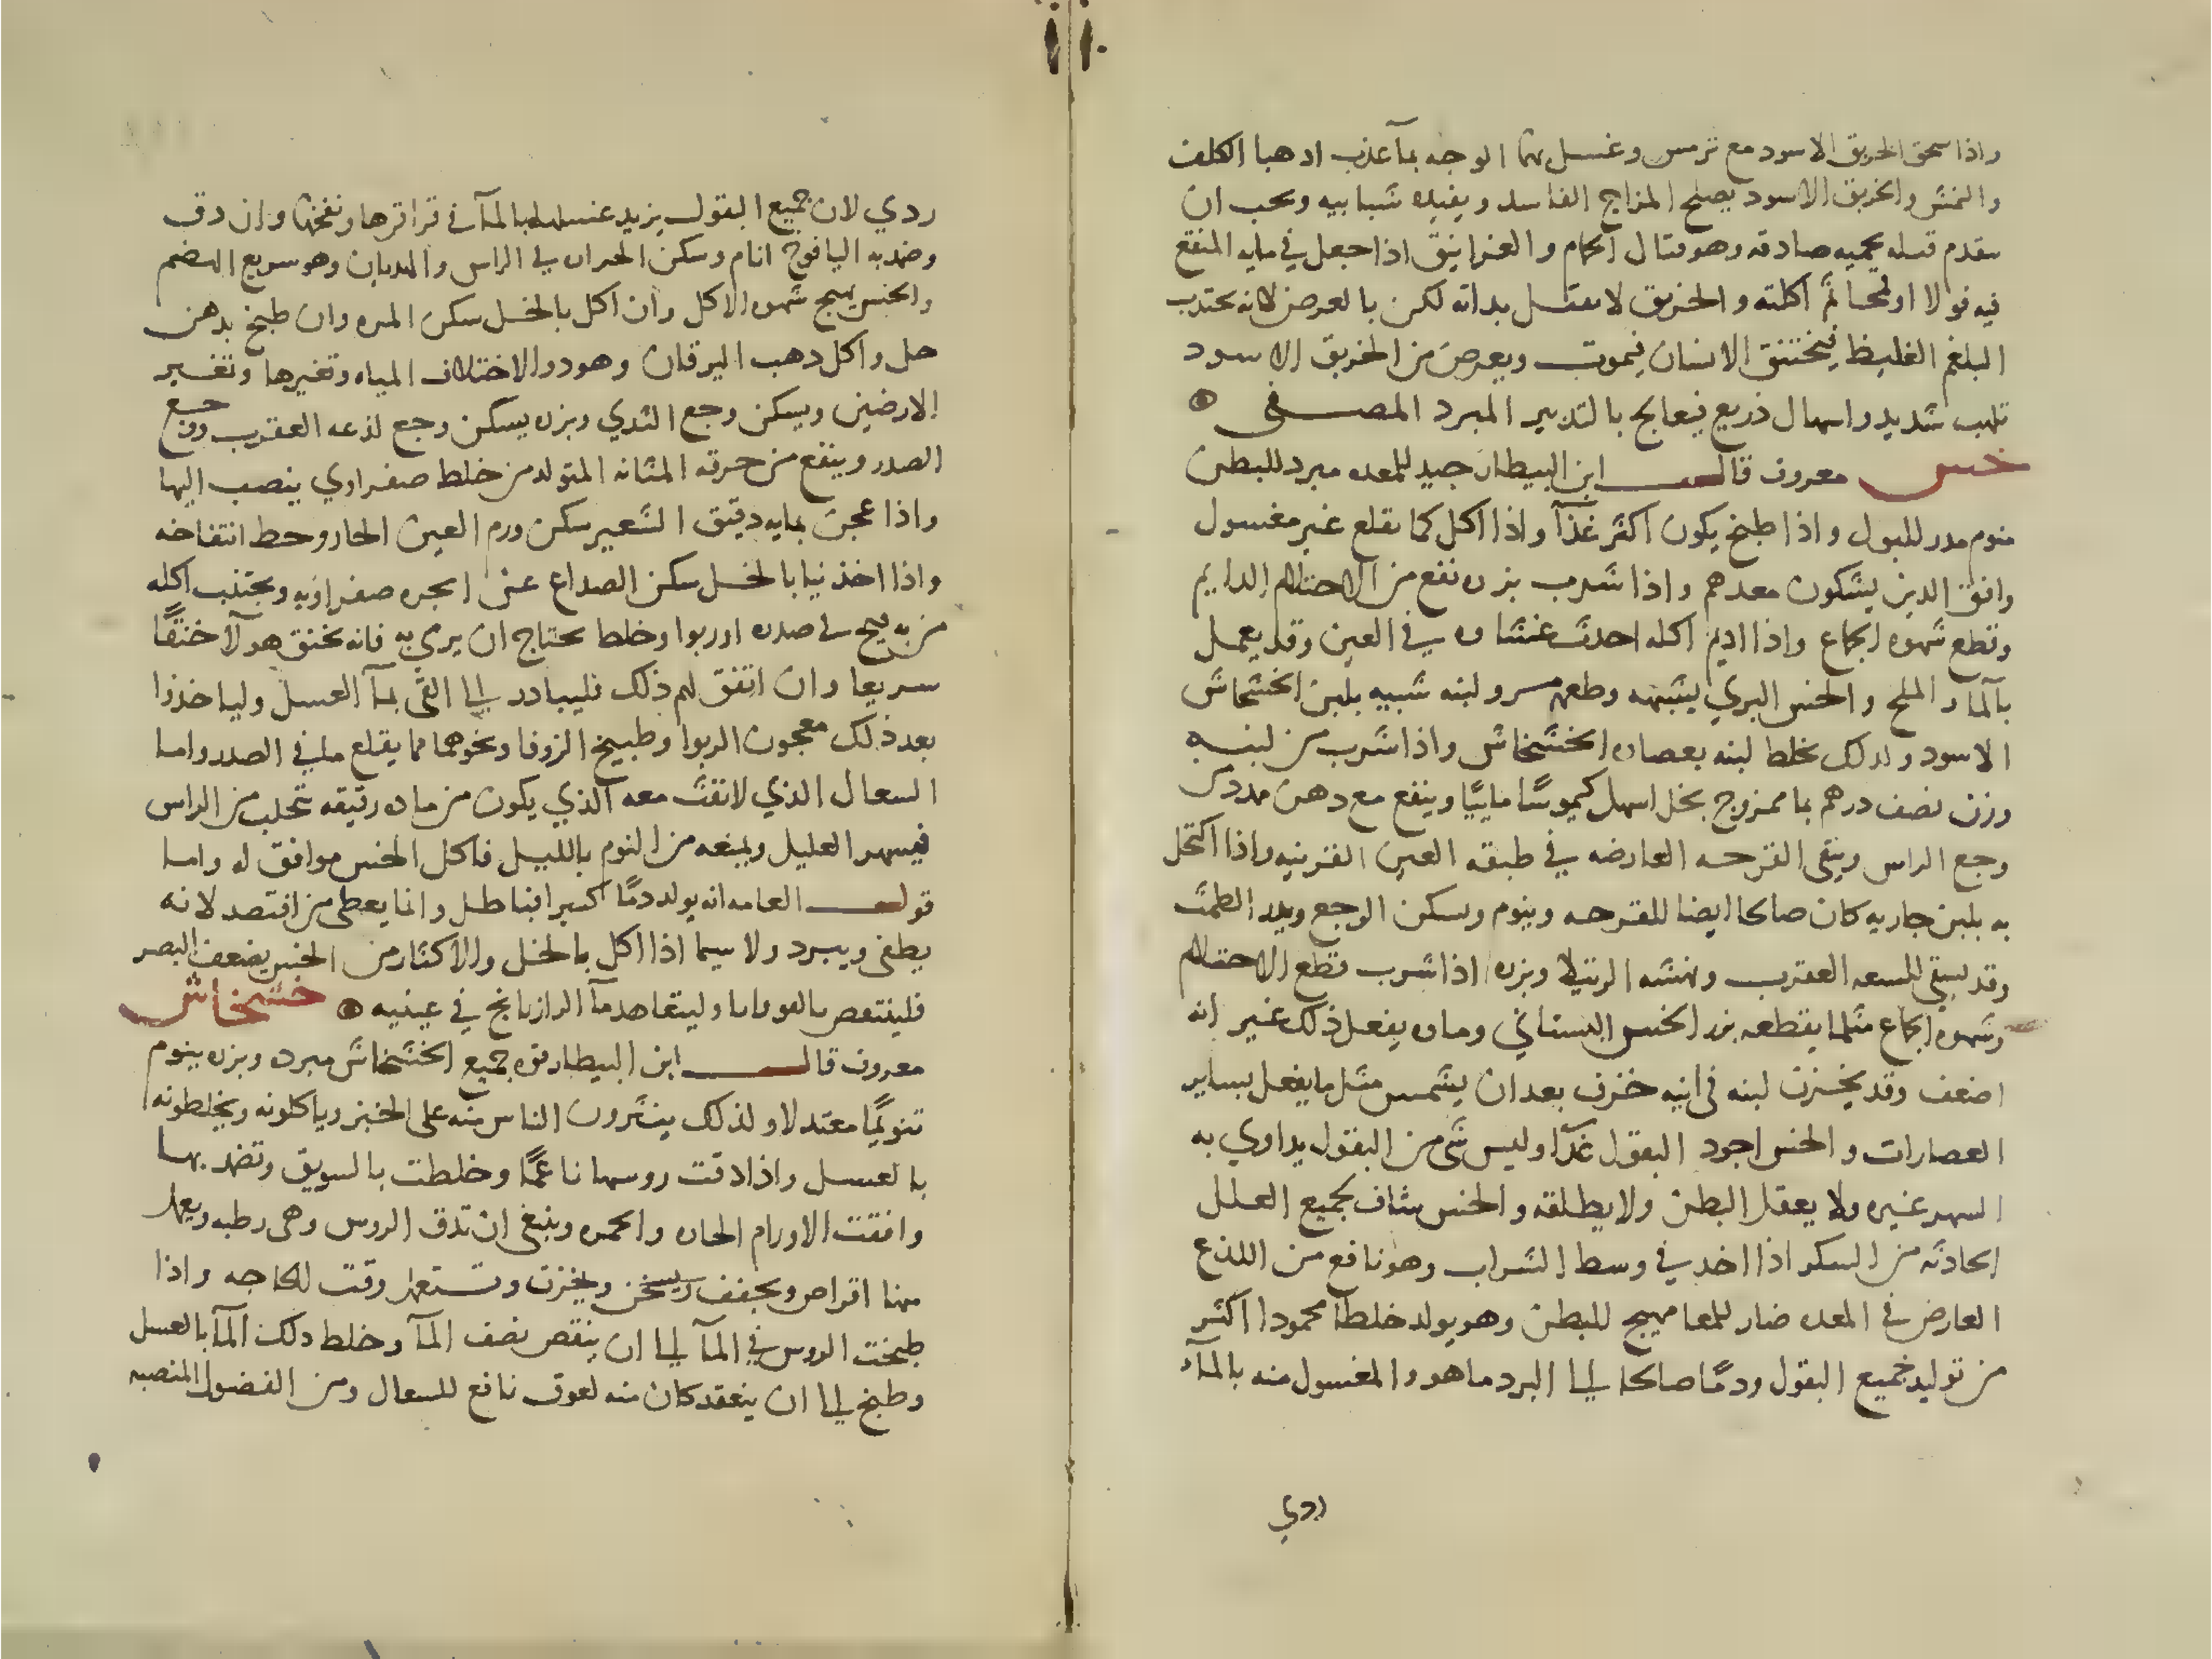 واذا سحق الخربق الاسود مع ترمس وغسل بهما الوجه بمآ عذب اذهبا الكلف
والنمش والخربق الاسود يصلح المزاج الفاسد ويفيده شبابيه ويجب ان
يتقدم قبله بحميه صادقه وهو قتال الحمام والغرانيق اذا جعل في مايه المنقع
فيه فولا او لحما ثم اكلته والخربق لا يقتل بذاته لكن بالعرض لانه يجتذب
البلغم الغليظ فيختنق الانسان فيموت ويعرض من الخربق الاسود
تلهب شديد واسهال ذريع فيعالج بالتدبير المبرد المصفى
خس معروف قال ابن البيطار جيد للمعده مبرد للبطن
منوم مدر للبول واذا طبخ يكون اكثر غذآ واذا اكل كما يقلع غير مغسول
وافق الذين يشكون معدهم واذا شرب بزره نفع من الاحتلام الدايم
وقطع شهوه الجماع واذا اديم اكله احدث غشاوه في العين وقد يعمل
بالمآ والملح والخس البري يشبهه وطعمه مر ولبنه شبيه بلبن الخشخاش
الاسود ولذلك يخلط لبنه بعصاره الخشخاش واذا شرب من لبنه
وزن نصف درهم بما ممزوج بخل اسهل كيموسًا ماييًا وينفع مع دهن
وجع الراس وينقى القرحه العارضه في طبقه العين القرنيه واذا اكتحل
به بلبن جاريه كان صالحا ايضا للقرحه وينوم ويسكن الوجع ويدر الطمث
وقد يسقى للسعه العقرب ونهشه الرتيلا وبزره اذا شرب قطع الاحتلام
وشهوه الجماع مثلما يقطعه بزر الخس البستاني وماوه يفعل ذلك غير انه
اضعف وقد يخزن لبنه في انيه خزف بعد ان يشمس مثل ما يفعل بساير
العصارات والخس اجود البقول غذآ وليس شى من البقول يداوي به
السهر غيره ولا يعقل البطن ولا يطلقه والخس شاف لجميع العلل
الحادثه من السكر اذا اخذ في وسط الشراب وهو نافع من اللذع
العارض في المعده ضار للمعا مهيج للبطن وهو يولد خلطآ محمودا اكثر
من توليد جميع البقول ودمًا صالحا الى البرد ما هو والمغسول منه بالمآء
ردي
ردي لان جميع البقول يزيد غسلها بالمآ في قراقرها ونفخها وان دق
وضمد به اليافوخ انام وسكن الحراره في الراس والهذيان وهو سريع الهضم
والخس يهيج شهوه الاكل وان اكل بالخل سكن المره وان طبخ بدهن
حل واكل ذهب اليرقان وهو دوا لاختلاف المياه وتغيرها وتغير
الارضين ويسكن وجع الثدي وبزره يسكن وجع لذعه العقرب ووجع
الصدر وينفع من حرقه المثانه المتولده من خلط صفراوي ينصب اليها
واذا عجن بمايه دقيق الشعير سكن ورم العين الحار وحط انتفاخه
واذا اخذ نيا بالخل سكن الصداع عن ابخره صفراويه ويجتنب اكله
من به قيح في صدره او ربوا وخلط يحتاج ان يرمي به فانه يخنق هولآ خنقًا
سريعا وان اتفق لهم ذلك فليبادر الى القى بمآ العسل ولياخذوا
بعد ذلك معجون الربوا وطبيخ الزوفا ونحوهما مما يقلع ما في الصدر واما
السعال الذي لا نفث معه الذي يكون من ماده رقيقه تتحلب من الراس
فيسهر العليل ويمنعه من النوم بالليل فاكل الخس موافق له واما
قول العامه انه يولد دمًا كثيرا فباطل وانما يعطى من افتصد لانه
يطفى ويبرد ولا سيما اذا اكل بالخل والاكثار من الخس يضعف البصر
وليتعاهد مآ الرازيانج في عينيه خشخاش
معروف قال ابن البيطار قوه جميع الخشخاش مبرده وبزره ينوم
تنويمًا معتدلا ولذلك ينثرون الناس منه على الخبز وياكلونه ويخلطونه
بالعسل واذا دقت روسها ناعمًا وخلطت بالسويق وتضمد بها
وافقت الاورام الحاره والحمره وينبغى ان تدق الروس وهى رطبه ويعمل
منها اقراص ويجفف ويسخن ويخزن وتستعمل وقت الحاجه واذا
طبخت الروس في المآ الى ان ينقص نصف المآ وخلط ذلك المآ بالعسل
وطبخ الى ان ينعقد كان منه لعوق نافع للسعال ومن الفضول المنصبه